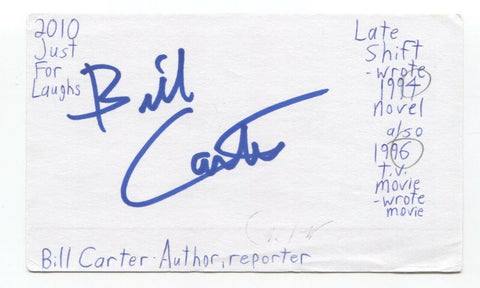 2010
Just
For
Laughs
Bill
Carter
Late
Shift
-wrote
1994
novel
also
1996
t.v.
movie
-wrote
movie
Bill Carter-Author, reporter